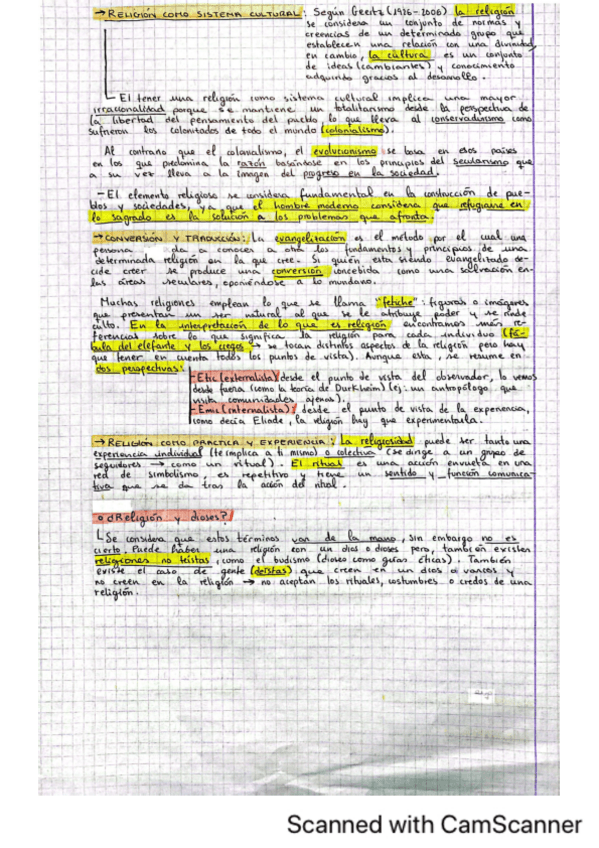 → RELIGIÓN COMO SISTEMA CULTURAL: Según Geertz (1926-2006) la religión
se considera un conjunto de normas y
creencias de un determinado grupo que
establecen una relación con una divinidad,
en cambio, la cultura es un conjunto
de ideas (cambiantes) y conocimiento
adquirido gracias al desarrollo.
El tener una religión como sistema cultural implica una mayor
irracionalidad porque se mantiene un totalitarismo desde la perspectiva de
la libertad del pensamiento del pueblo lo que lleva al conservadurismo como
sufrieron los colonizados de todo el mundo (colonialismo).
Al contrario que el colonialismo, el evolucionismo se basa en esos países
en los que predomina la razón basándose en los principios del secularismo que
a su vez lleva a la imagen del progreso en la sociedad.
- El elemento religioso se considera fundamental en la construcción de pue-
blos y sociedades ya que el hombre moderno considera que refugiarse en
lo sagrado es la solución a los problemas que afronta.
→ CONVERSIÓN Y TRADUCCIÓN: La evangelización es el método por el cual una
persona da a conoces a otra los fundamentos y principios de una
determinada religión en la que cree. Si quién esta siendo evangelizado de-
cide creer se produce una conversión concebida como una salvación en
las áreas seculares, oponiéndose a lo mundano.
Muchas religiones emplean lo que se llama "fetiche": figuras o imágenes
que presentan un ser natural al que se le atribuye poder y se rinde
culto. En la interpretación de lo que es religión encontramos más re-
ferencias sobre lo que significa la religión para cada individuo (fá-
bula del elefante y los ciegos → se tocan distintos aspectos de la religión pero hay
que tener en cuenta todos los puntos de vista). Aunque esta, se resume en
dos perspectivas:
- Etic (externalista) desde el punto de vista del observador, lo vemos
desde fuera (como la teoría de Durkheim) (ej: un antropólogo que
visita comunidades ajenas).
- Emic (internalista): desde el punto de vista de la experiencia,
como decía Eliade, la religión hay que experimentarla.
→ RELIGIÓN COMO PRÁCTICA Y EXPERIENCIA: La religiosidad puede ser tanto una
experiencia individual (te implica a ti mismo) o colectiva (se dirige a un grupo de
seguidores → como un ritual). El ritual es una acción envuelta en una
red de simbolismo, es repetitivo y tiene un sentido y función comunica-
tiva que se da tras la acción del ritual.
o ¿Religión y dioses?
Se considera que estos términos van de la mano, sin embargo no es
cierto. Puede haber una religión con un dios o dioses pero, también existen
religiones no teístas, como el budismo (dioses como guías éticas). También
existe el caso de gente (deístas) que creen en un dios o varios y
no creen en la religión → no aceptan los rituales, costumbres o credos de una
religión.
Scanned with CamScanner